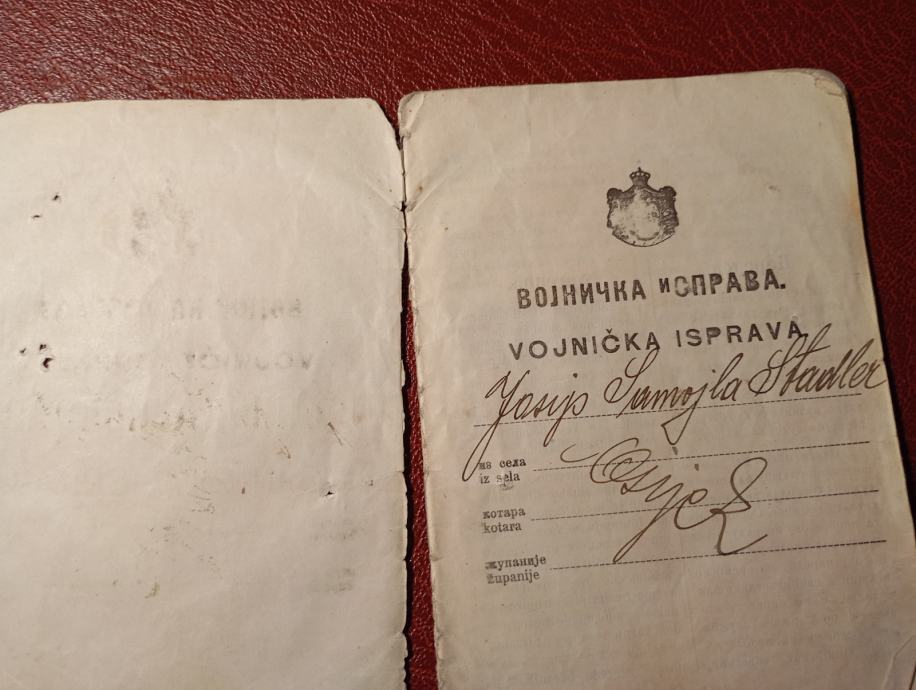 ВОЈНИЧКА ИСПРАВА.
VOJNIČKA ISPRAVA
Josip Samojla Stadler
из села
iz sela
Osijek
котара
kotara
жупаније
županije